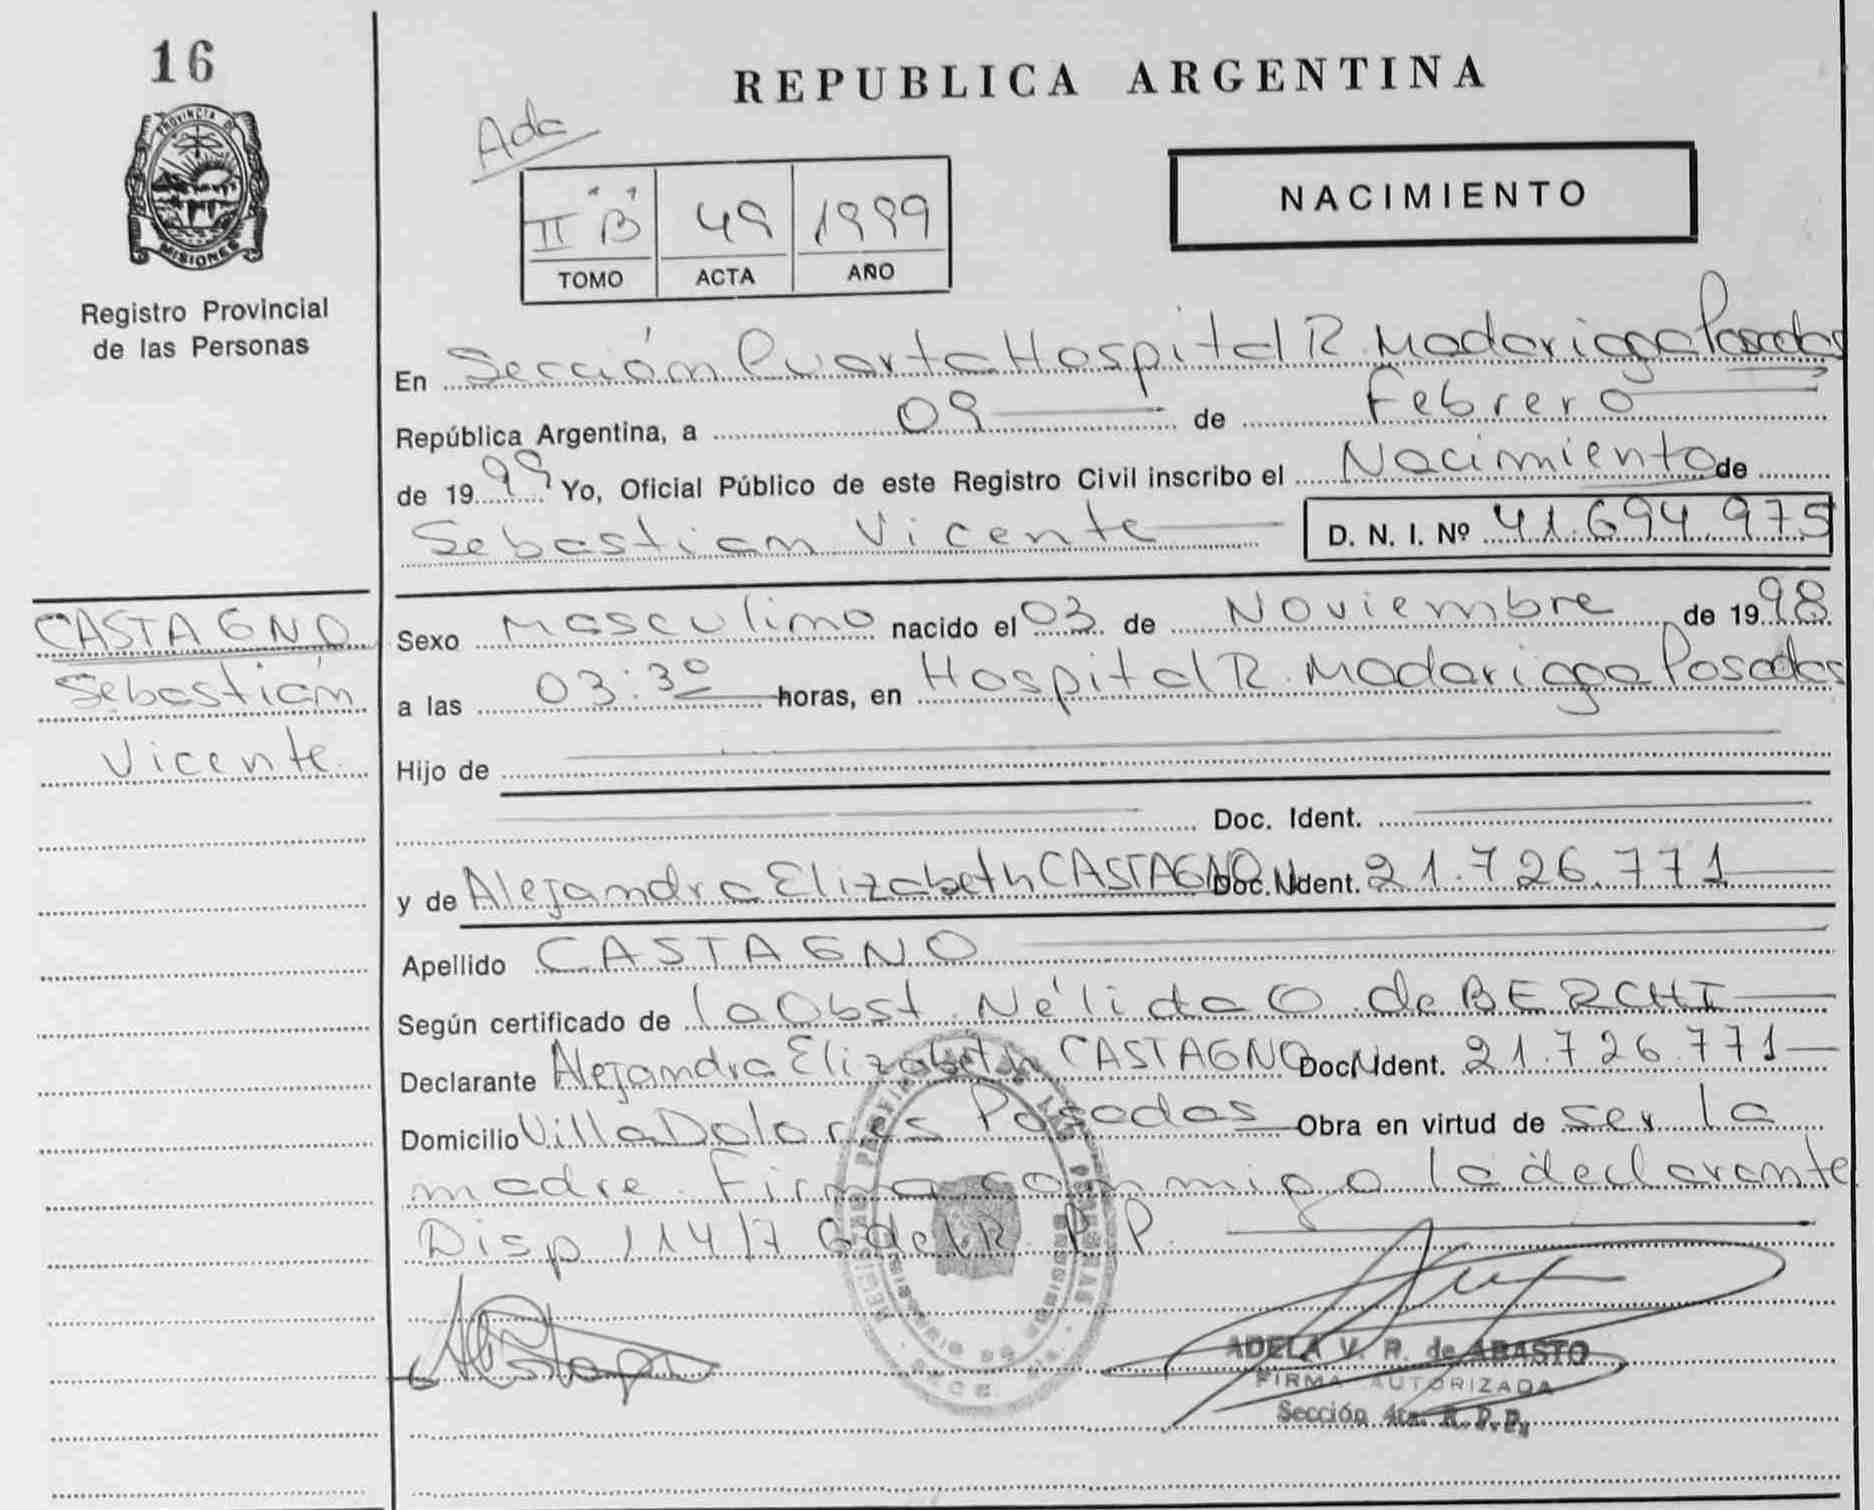 16
PROVINCIA DE
MISIONES
Registro Provincial
de las Personas
REPUBLICA ARGENTINA
Ada
NACIMIENTO
II "B" 49 1999
TOMO ACTA AÑO
En Sección Cuarta Hospital R. Madariaga Posadas
República Argentina, a 09 de Febrero
de 1999 Yo, Oficial Público de este Registro Civil inscribo el Nacimiento de
Sebastian Vicente D. N. I. Nº 41.694.975
CASTAGNO
Sebastián
Vicente
Sexo Masculino nacido el 03 de Noviembre de 1998
a las 03:30 horas, en Hospital R. Madariaga Posadas
Hijo de
Doc. Ident.
y de Alejandra Elizabeth CASTAGNO Doc. Ident. 21.726.771
Apellido CASTAGNO
Según certificado de la Obst. Nélida O. de BERCHI
Declarante Alejandra Elizabeth CASTAGNO Doc. Ident. 21.726.771
Domicilio Villa Dolores Posadas Obra en virtud de ser la
madre. Firma conmigo la declarante
Disp 114/7 G del R. P. P.
ADELA V. R. de ABASTO
FIRMA AUTORIZADA
Sección 4ta. R. P. P.